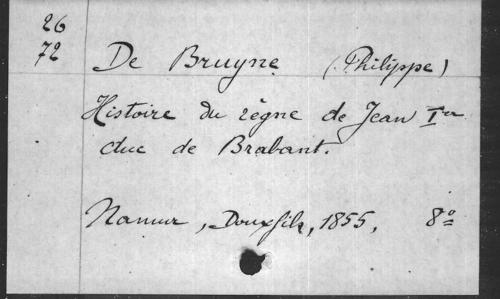 26
72
De Bruyne (Philippe)
Histoire du règne de Jean Ier
duc de Brabant.
Namur, Douxfils, 1855, 8º